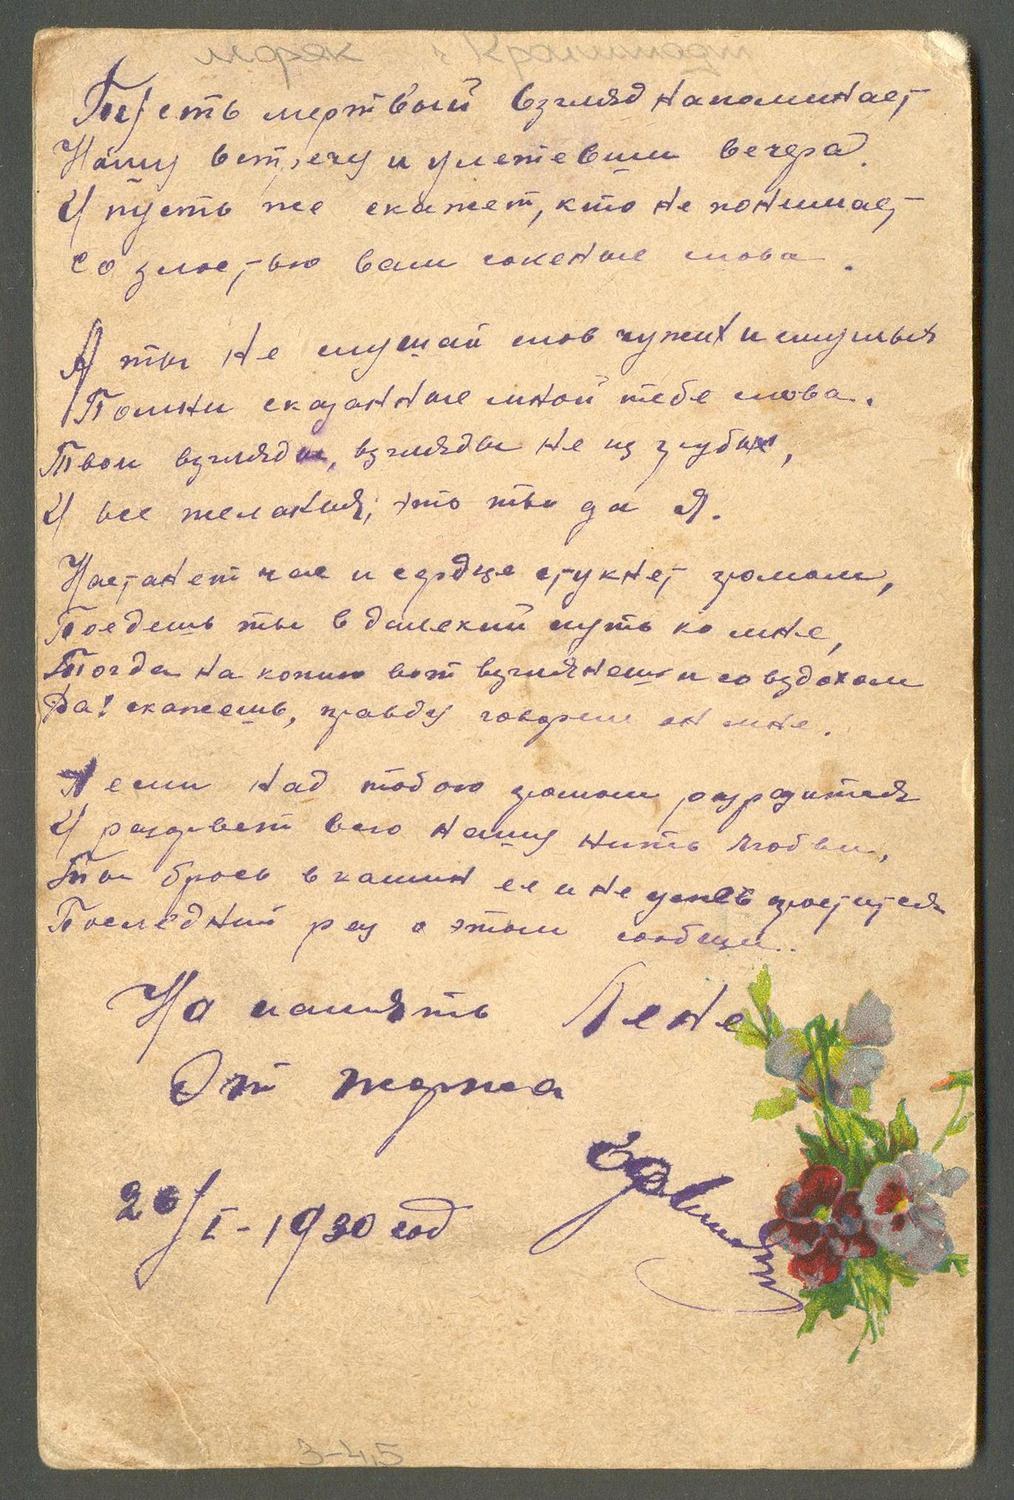 Пусть мертвый взгляд напоминает
Нашу встречу и улетевши вечера.
И пусть же скажет, кто не понимает
Со злостью вам
А ты не слушай слов чужих и
Помни сказанные мной тебе слова.
Твои взгляды, взгляды не из грубых,
И все желания, это ты да Я.
Настанет час и сердце стукнет громом,
Поедешь ты в далекий путь ко мне,
Тогда на копию вот взглянешь и со вздохом
Да! скажешь, правду говорил он мне.
А если над тобою громом разразится
И разорвет всю нашу нить любви,
Ты брось в камин ее и не успев проститься
Последний раз о этом сообщи..
На память Лене
От жоржа
26/I-1930 год
3-45